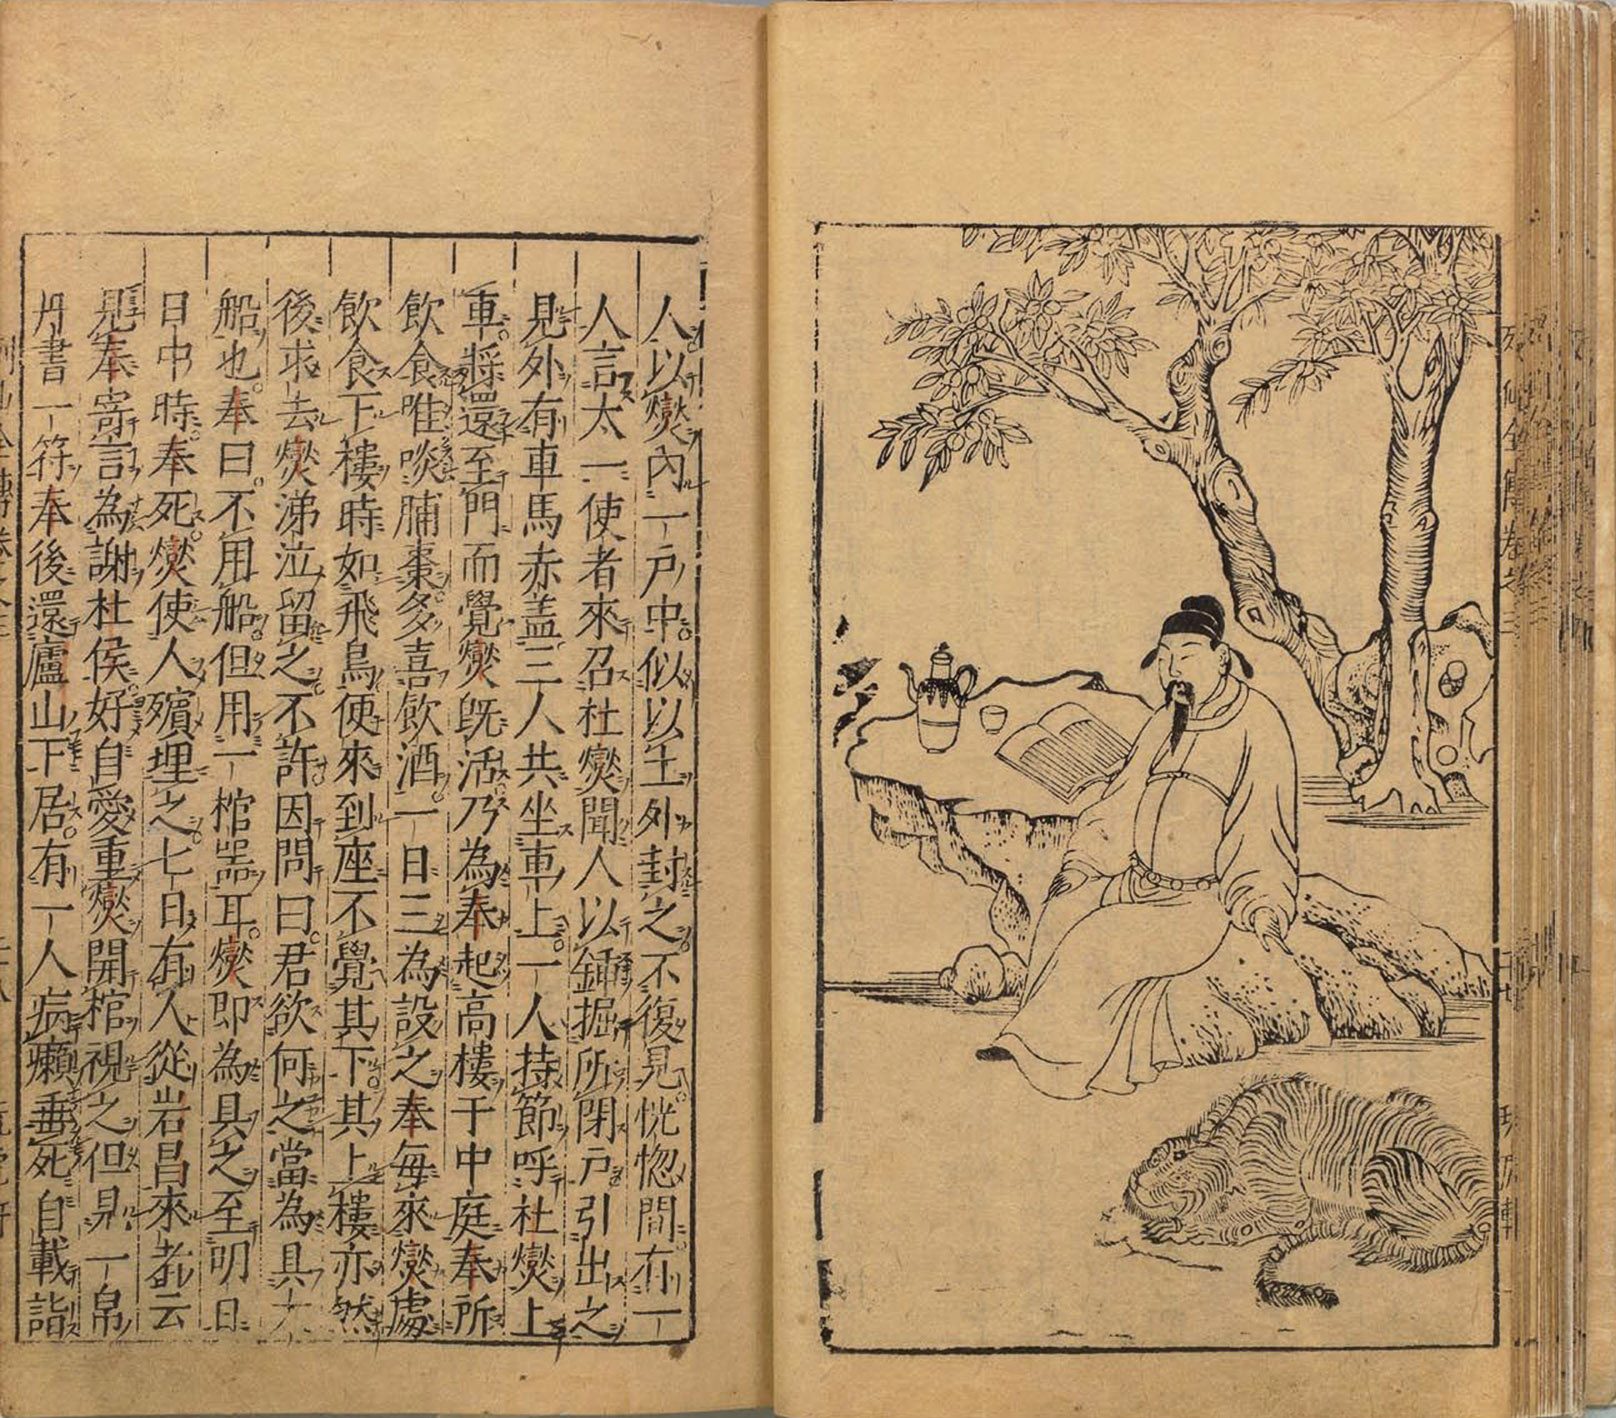 人以燮內一戶中似以土外封之不復見恍惚間有一
人言太一使者來召杜燮聞人以鍤掘所閉戶引出之
見外有車馬赤盖三人共坐車上一人持節呼杜燮上
車將還至門而覺燮既活乃為奉起高樓于中庭奉所
飲食唯啖脯棗多喜飲酒一日三為設之奉每來燮處
飲食下樓時如飛鳥便來到座不覺其下其上樓亦然
後求去燮涕泣留之不許因問曰君欲何之當為具大
船也奉曰不用船但用一棺噐耳燮即為具之至明日
日中時奉死燮使人殯埋之七日有人從岩昌來者云
見奉寄言為謝杜侯好自愛重燮開棺視之但見一帛
丹書一符奉後還廬山下居有一人病癩垂死自載詣